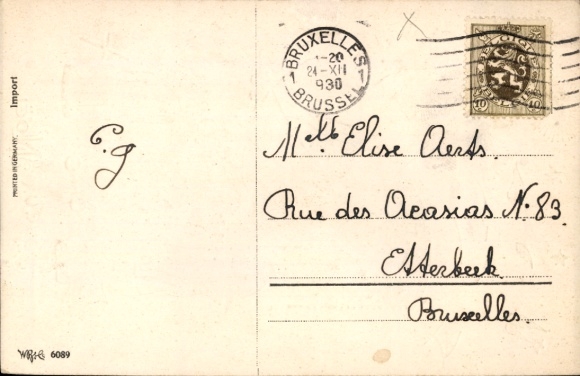 Import
PRINTED IN GERMANY.
C. J
WR&C 6089
BRUXELLES
1 1
-20
24-XII
930
BRUSSEL
BELGIQUE
BELGIË
10 10
Melle Elise Aerts.
Rue des Acasias N. 83.
Etterbeek
Bruxelles.